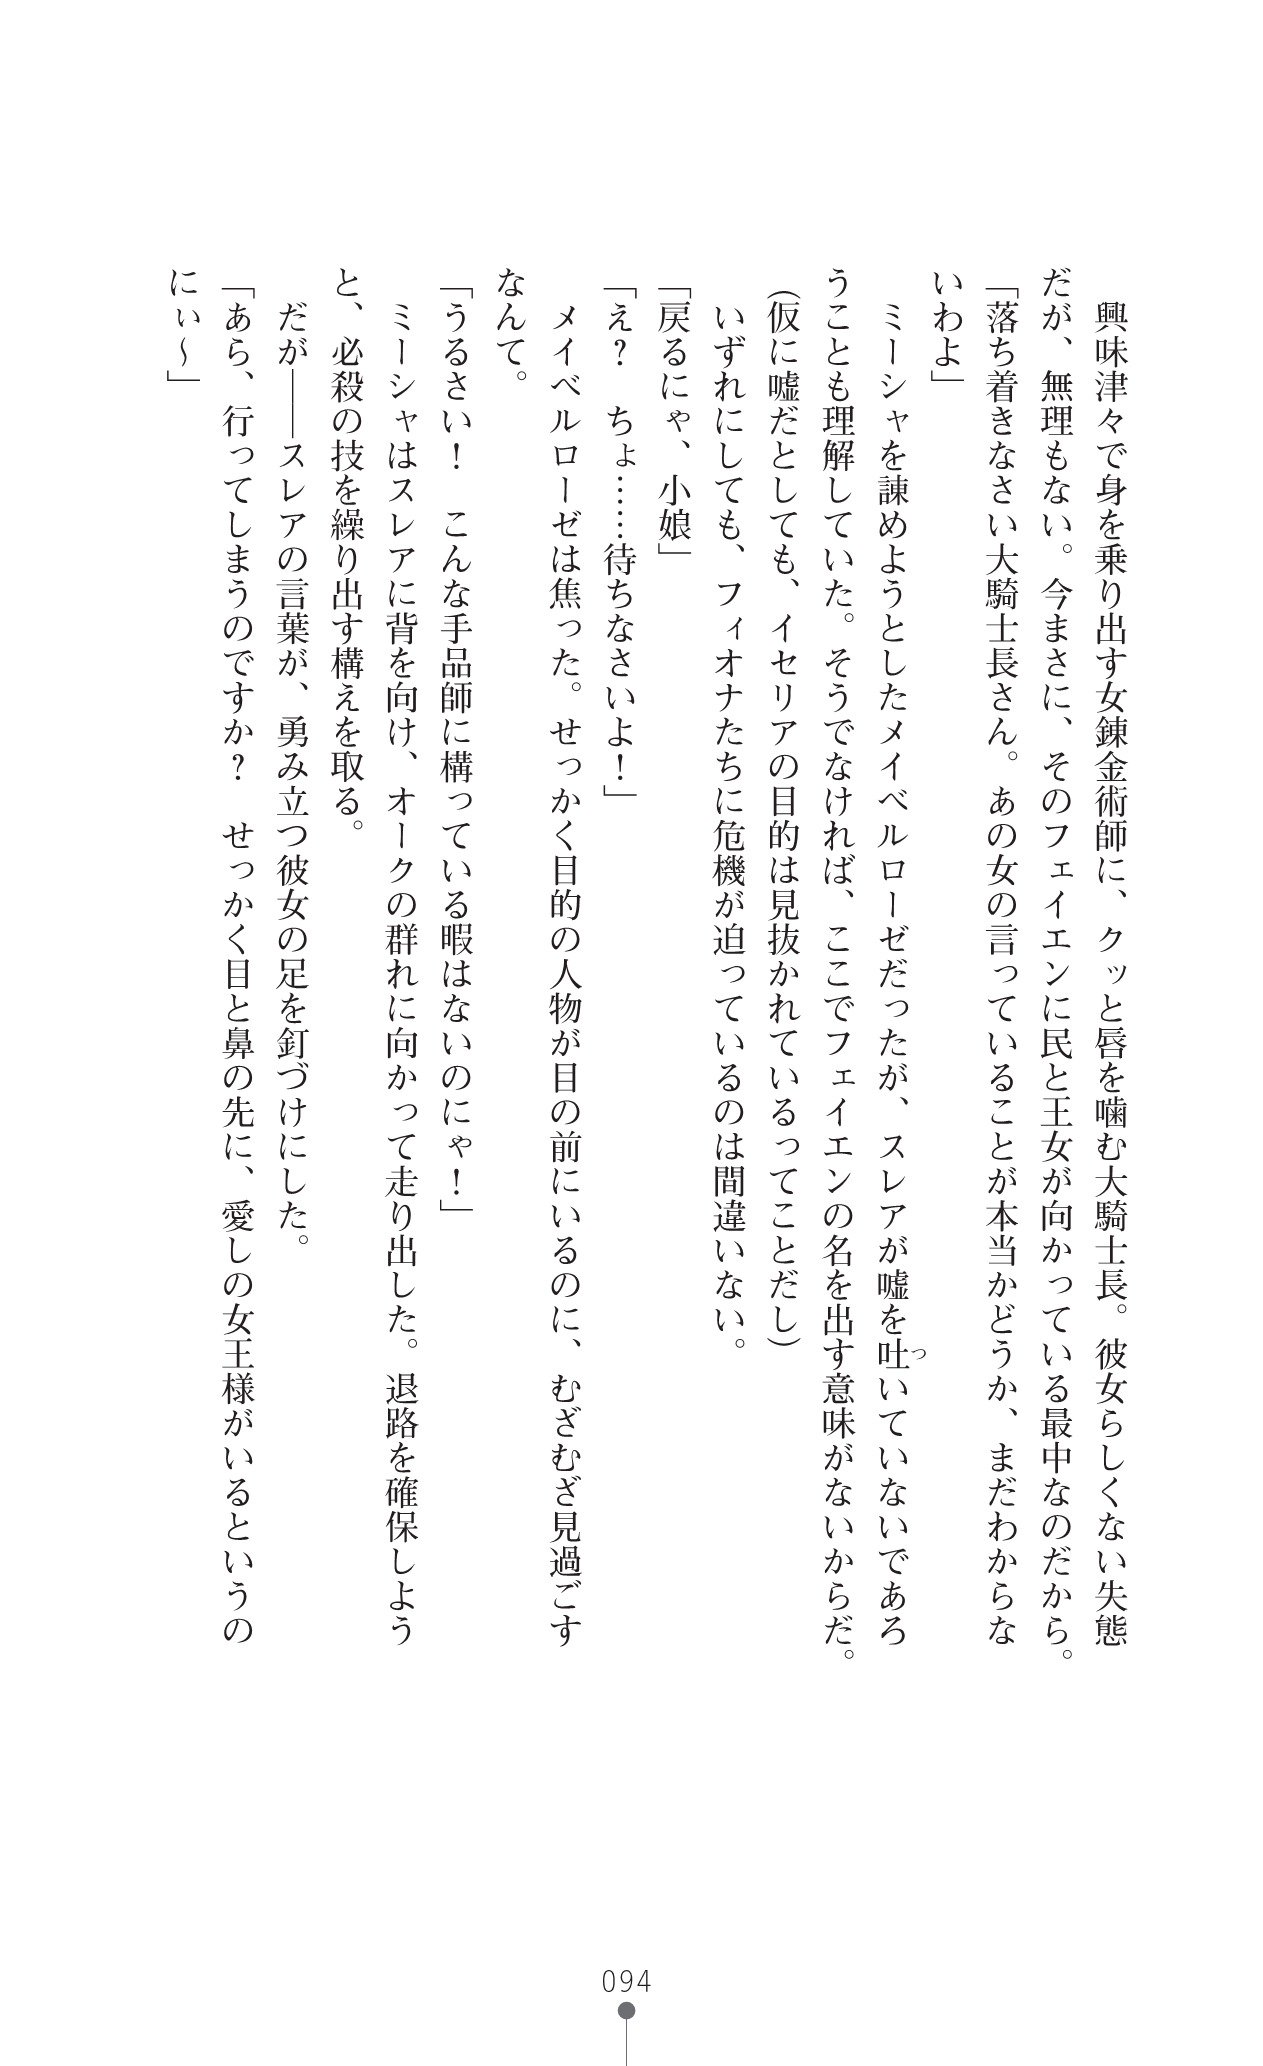 興味津々で身を乗り出す女錬金術師に、クッと唇を噛む大騎士長。彼女らしくない失態
だが、無理もない。今まさに、そのフェイエンに民と王女が向かっている最中なのだから。
「落ち着きなさい大騎士長さん。あの女の言っていることが本当かどうか、まだわからな
いわよ」
　ミーシャを諌めようとしたメイベルローゼだったが、スレアが嘘を吐いていないであろ
うことも理解していた。そうでなければ、ここでフェイエンの名を出す意味がないからだ。
（仮に嘘だとしても、イセリアの目的は見抜かれているってことだし）
　いずれにしても、フィオナたちに危機が迫っているのは間違いない。
「戻るにゃ、小娘」
「え？　ちょ……待ちなさいよ！」
　メイベルローゼは焦った。せっかく目的の人物が目の前にいるのに、むざむざ見過ごす
なんて。
「うるさい！　こんな手品師に構っている暇はないのにゃ！」
　ミーシャはスレアに背を向け、オークの群れに向かって走り出した。退路を確保しよう
と、必殺の技を繰り出す構えを取る。
　だが――スレアの言葉が、勇み立つ彼女の足を釘づけにした。
「あら、行ってしまうのですか？　せっかく目と鼻の先に、愛しの女王様がいるというの
にぃ～」
つ
094